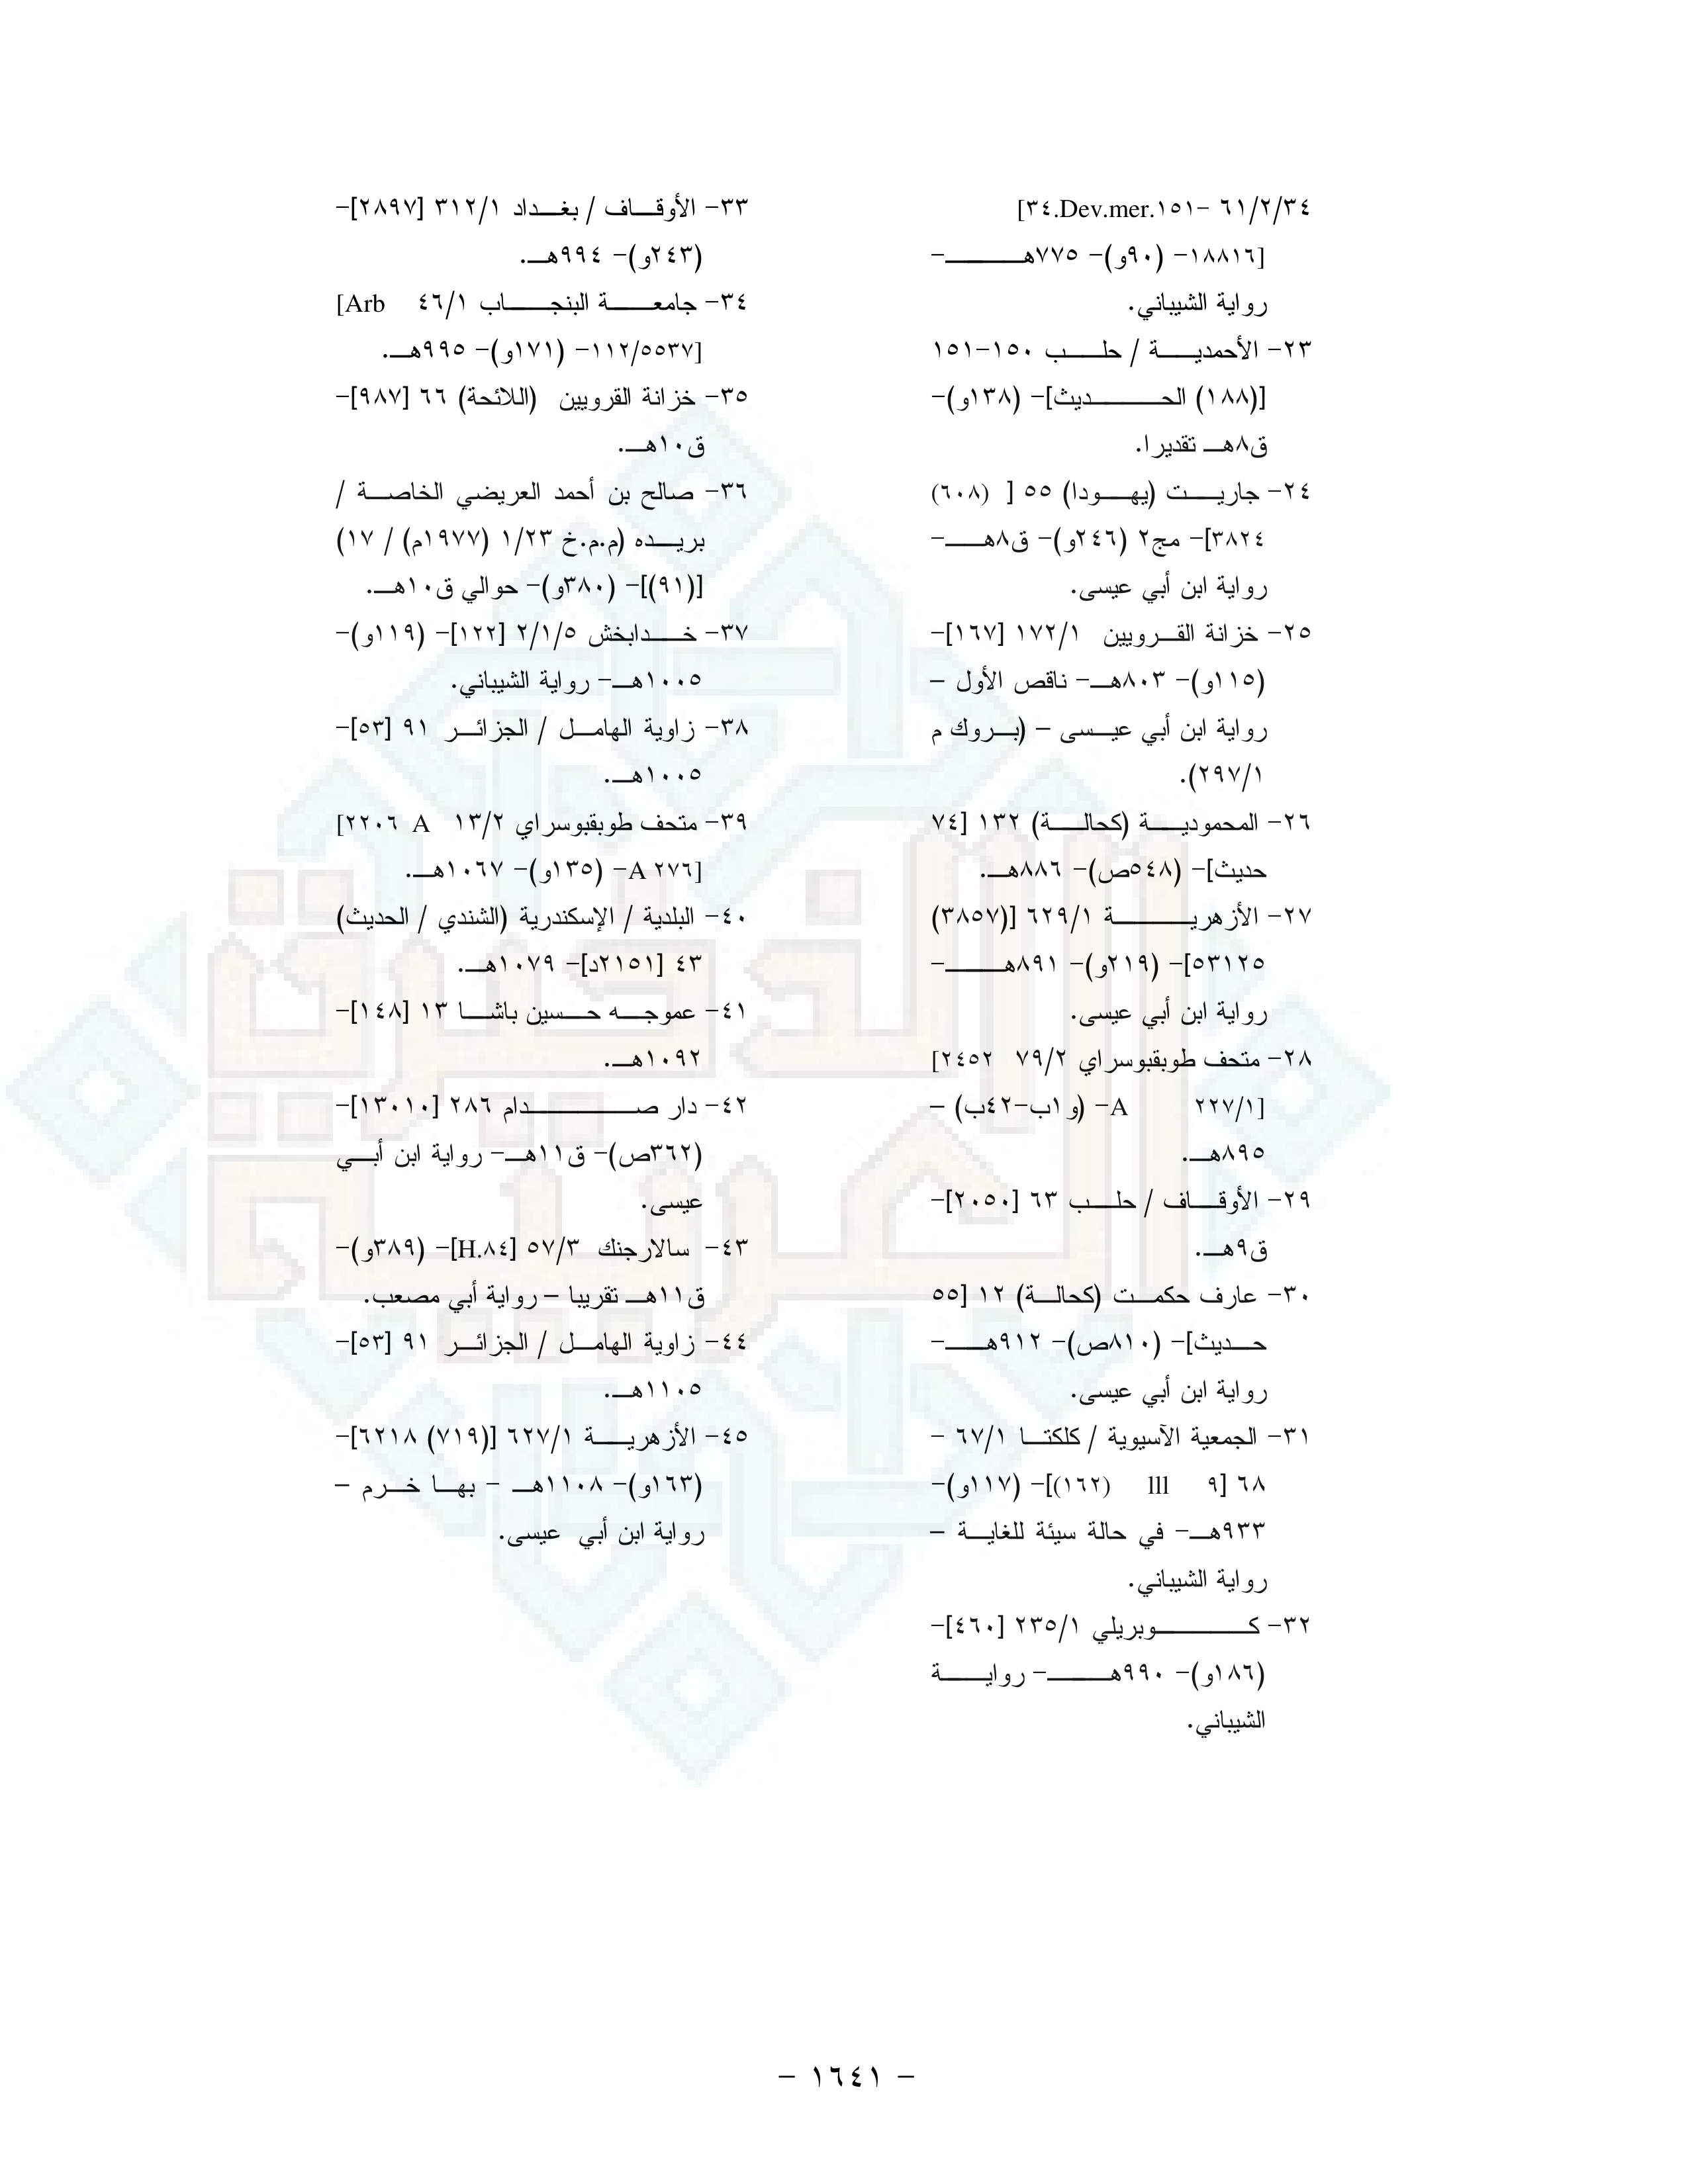 ٦١/٢/٣٤ -١٥١.Dev.mer.٣٤]
١٨٨١٦]- (٩٠و)- ٧٧٥هـ-
رواية الشيباني.
٢٣- الأحمدية / حلب ١٥٠-١٥١
[(١٨٨) الحديث]- (١٣٨و)-
ق٨هـ تقديرا.
٢٤- جاريت (يهودا) ٥٥ [ (٦٠٨)
٣٨٢٤]- مج٢ (٢٤٦و)- ق٨هـ-
رواية ابن أبي عيسى.
٢٥- خزانة القرويين ١٧٢/١ [١٦٧]-
(١١٥و)- ٨٠٣هـ- ناقص الأول –
رواية ابن أبي عيسى – (بروك م
٢٩٧/١).
٢٦- المحمودية (كحالة) ١٣٢ [٧٤
حديث]- (٥٤٨ص)- ٨٨٦هـ.
٢٧- الأزهرية ٦٢٩/١ [(٣٨٥٧)
٥٣١٢٥]- (٢١٩و)- ٨٩١هـ-
رواية ابن أبي عيسى.
٢٨- متحف طوبقبوسراي ٧٩/٢ [٢٤٥٢
٢٢٧/١ A]- (و١ب-٤٢ب) –
٨٩٥هـ.
٢٩- الأوقاف / حلب ٦٣ [٢٠٥٠]-
ق٩هـ.
٣٠- عارف حكمت (كحالة) ١٢ [٥٥
حديث]- (٨١٠ص)- ٩١٢هـ-
رواية ابن أبي عيسى.
٣١- الجمعية الآسيوية / كلكتا ٦٧/١ -
٦٨ [٩ lll (١٦٢)]- (١١٧و)-
٩٣٣هـ- في حالة سيئة للغاية –
رواية الشيباني.
٣٢- كوبريلي ٢٣٥/١ [٤٦٠]-
(١٨٦و)- ٩٩٠هـ- رواية
الشيباني.
٣٣- الأوقاف / بغداد ٣١٢/١ [٢٨٩٧]-
(٢٤٣و)- ٩٩٤هـ.
٣٤- جامعة البنجاب ٤٦/١ [Arb
١١٢/٥٥٣٧]- (١٧١و)- ٩٩٥هـ.
٣٥- خزانة القرويين (اللائحة) ٦٦ [٩٨٧]-
ق١٠هـ.
٣٦- صالح بن أحمد العريضي الخاصة /
بريده (م.م.خ ١/٢٣ (١٩٧٧م) / ١٧)
[(٩١)]- (٣٨٠و)- حوالي ق١٠هـ.
٣٧- خدابخش ٢/١/٥ [١٢٢]- (١١٩و)-
١٠٠٥هـ- رواية الشيباني.
٣٨- زاوية الهامل / الجزائر ٩١ [٥٣]-
١٠٠٥هـ.
٣٩- متحف طوبقبوسراي ١٣/٢ [٢٢٠٦ A
٢٧٦ A]- (١٣٥و)- ١٠٦٧هـ.
٤٠- البلدية / الإسكندرية (الشندي / الحديث)
٤٣ [٢١٥١د]- ١٠٧٩هـ.
٤١- عموجه حسين باشا ١٣ [١٤٨]-
١٠٩٢هـ.
٤٢- دار صدام ٢٨٦ [١٣٠١٠]-
(٣٦٢ص)- ق١١هـ- رواية ابن أبي
عيسى.
٤٣- سالارجنك ٥٧/٣ [H.٨٤]- (٣٨٩و)-
ق١١هـ تقريبا – رواية أبي مصعب.
٤٤- زاوية الهامل / الجزائر ٩١ [٥٣]-
١١٠٥هـ.
٤٥- الأزهرية ٦٢٧/١ [(٧١٩) ٦٢١٨]-
(١٦٣و)- ١١٠٨هـ - بها خرم –
رواية ابن أبي عيسى.
- ١٦٤١ -
الذخيرة
العربية